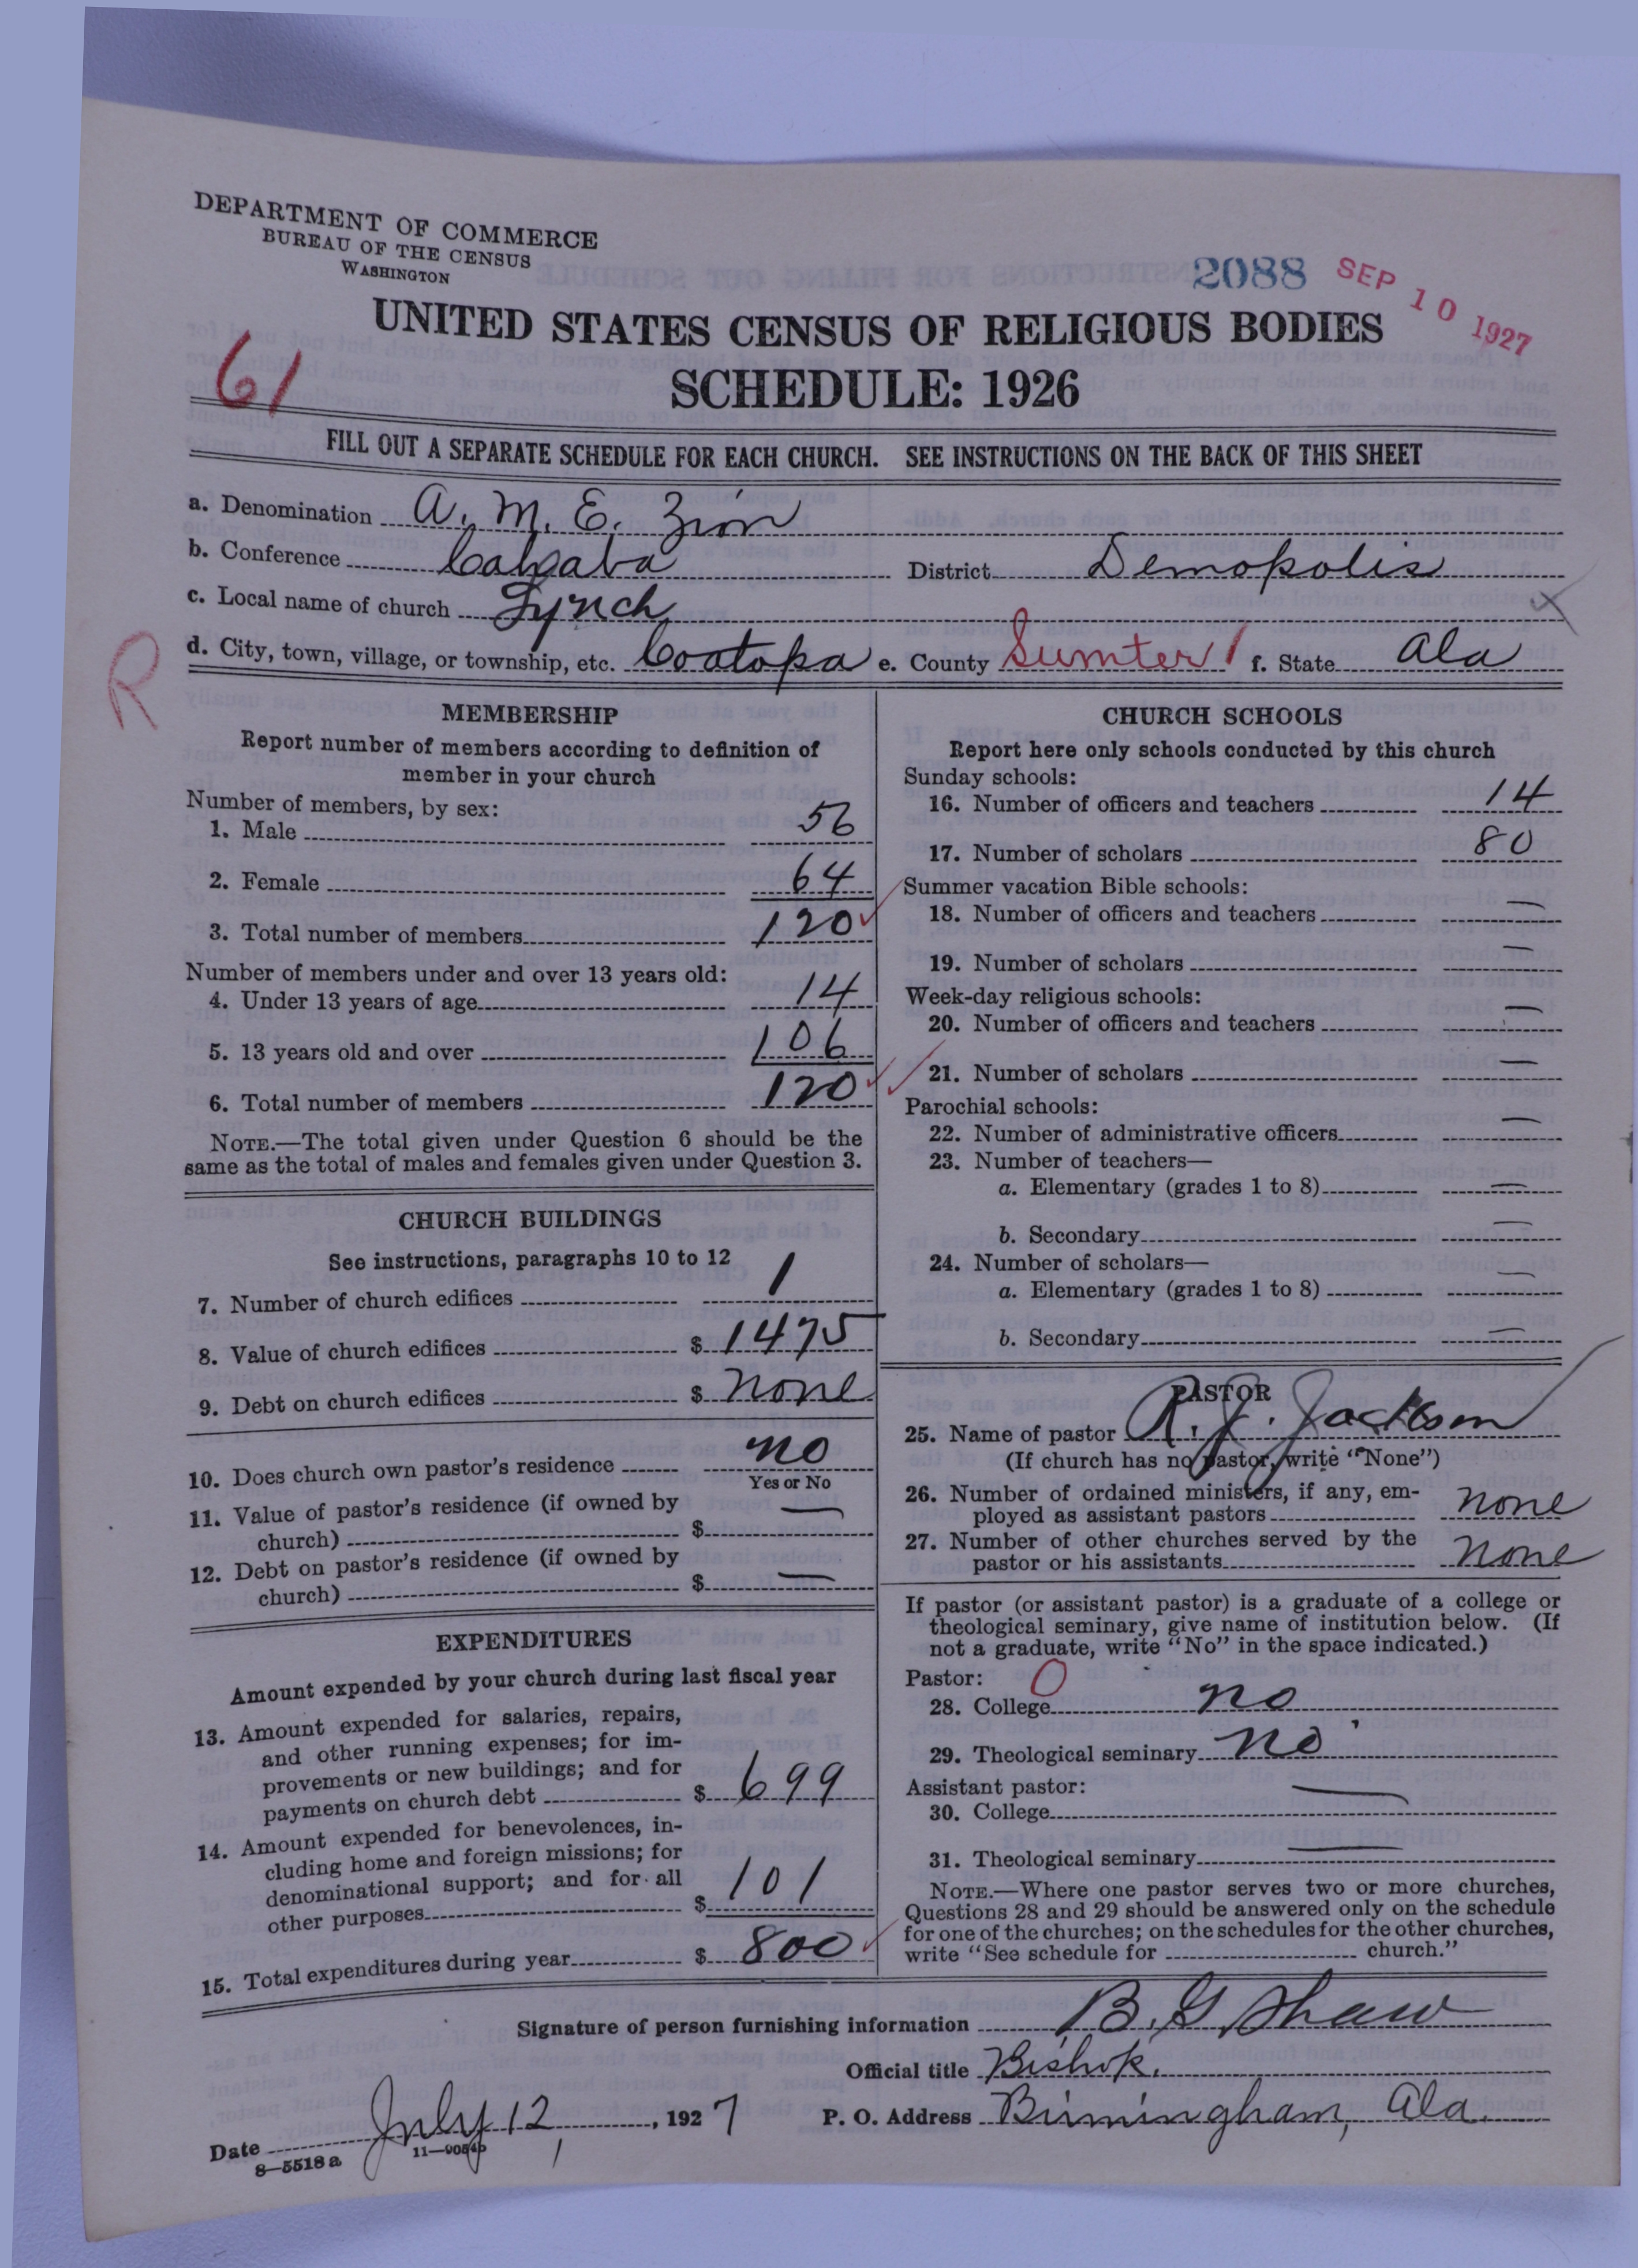 DEPARTMENT OF COMMERCE
BUREAU OF THE CENSUS
WASHINGTON
2088 SEP 10 1927
UNITED STATES CENSUS OF RELIGIOUS BODIES
61
SCHEDULE: 1926
FILL OUT A SEPARATE SCHEDULE FOR EACH CHURCH. SEE INSTRUCTIONS ON THE BACK OF THIS SHEET
a. Denomination A. M. E. Zion
b. Conference Cahaba District Demopolis
c. Local name of church Lynch X
d. City, town, village, or township, etc. Coatopa e. County Sumter / f. State Ala
R
MEMBERSHIP
Report number of members according to definition of
member in your church
Number of members, by sex:
1. Male 56
2. Female 64
3. Total number of members 120
Number of members under and over 13 years old:
4. Under 13 years of age 14
5. 13 years old and over 106
6. Total number of members 120
NOTE.—The total given under Question 6 should be the
same as the total of males and females given under Question 3.
CHURCH BUILDINGS
See instructions, paragraphs 10 to 12
7. Number of church edifices 1
8. Value of church edifices $ 1475
9. Debt on church edifices $ none
10. Does church own pastor's residence no
Yes or No
11. Value of pastor's residence (if owned by
church) $ —
12. Debt on pastor's residence (if owned by
church) $ —
EXPENDITURES
Amount expended by your church during last fiscal year
13. Amount expended for salaries, repairs,
and other running expenses; for im-
provements or new buildings; and for
payments on church debt $ 699
14. Amount expended for benevolences, in-
cluding home and foreign missions; for
denominational support; and for all
other purposes $ 101
15. Total expenditures during year $ 800
CHURCH SCHOOLS
Report here only schools conducted by this church
Sunday schools:
16. Number of officers and teachers 14
17. Number of scholars 80
Summer vacation Bible schools:
18. Number of officers and teachers —
19. Number of scholars —
Week-day religious schools:
20. Number of officers and teachers —
21. Number of scholars —
Parochial schools:
22. Number of administrative officers —
23. Number of teachers—
a. Elementary (grades 1 to 8) —
b. Secondary —
24. Number of scholars—
a. Elementary (grades 1 to 8) —
b. Secondary —
PASTOR
25. Name of pastor R. J. Jackson
(If church has no pastor, write "None")
26. Number of ordained ministers, if any, em-
ployed as assistant pastors none
27. Number of other churches served by the
pastor or his assistants none
If pastor (or assistant pastor) is a graduate of a college or
theological seminary, give name of institution below. (If
not a graduate, write "No" in the space indicated.)
Pastor: 0
28. College no
29. Theological seminary no
Assistant pastor:
30. College —
31. Theological seminary —
NOTE.—Where one pastor serves two or more churches,
Questions 28 and 29 should be answered only on the schedule
for one of the churches; on the schedules for the other churches,
write "See schedule for church."
Signature of person furnishing information B. G. Shaw
Official title Bishop.
Date July 12, 1927 P. O. Address Birmingham, Ala.
8—5518a 11—9054b